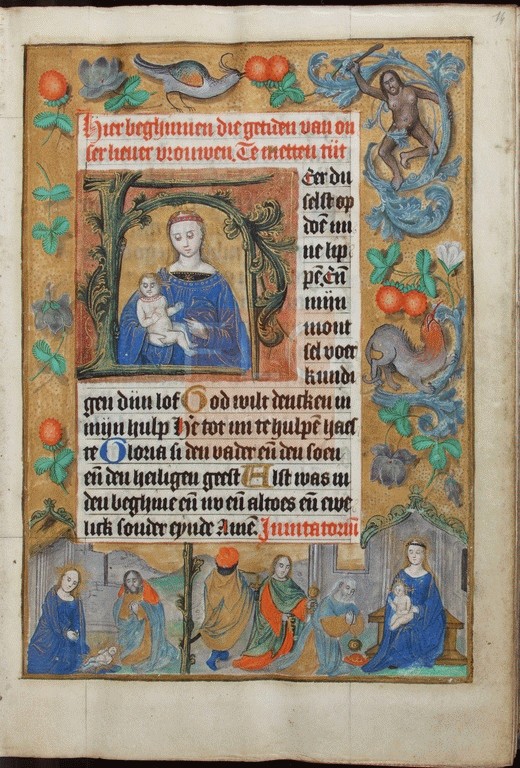 14
Hier beghinnen die getiden van on
ser liever vrouwen. Te metten tijt
Heer du
selst op
doē mi
ne lip
pē. Eñ
mijn
mont
sel voer
kundi
gen dijn lof God wilt dencken in
mijn hulp He tot mi te hulpē haes
te Gloria si den vader eñ den soen
eñ den heiligen geest Alst was in
den beghinē eñ nv eñ altoes eñ ewe
lick sonder eynde Amē. Inuitatoriū